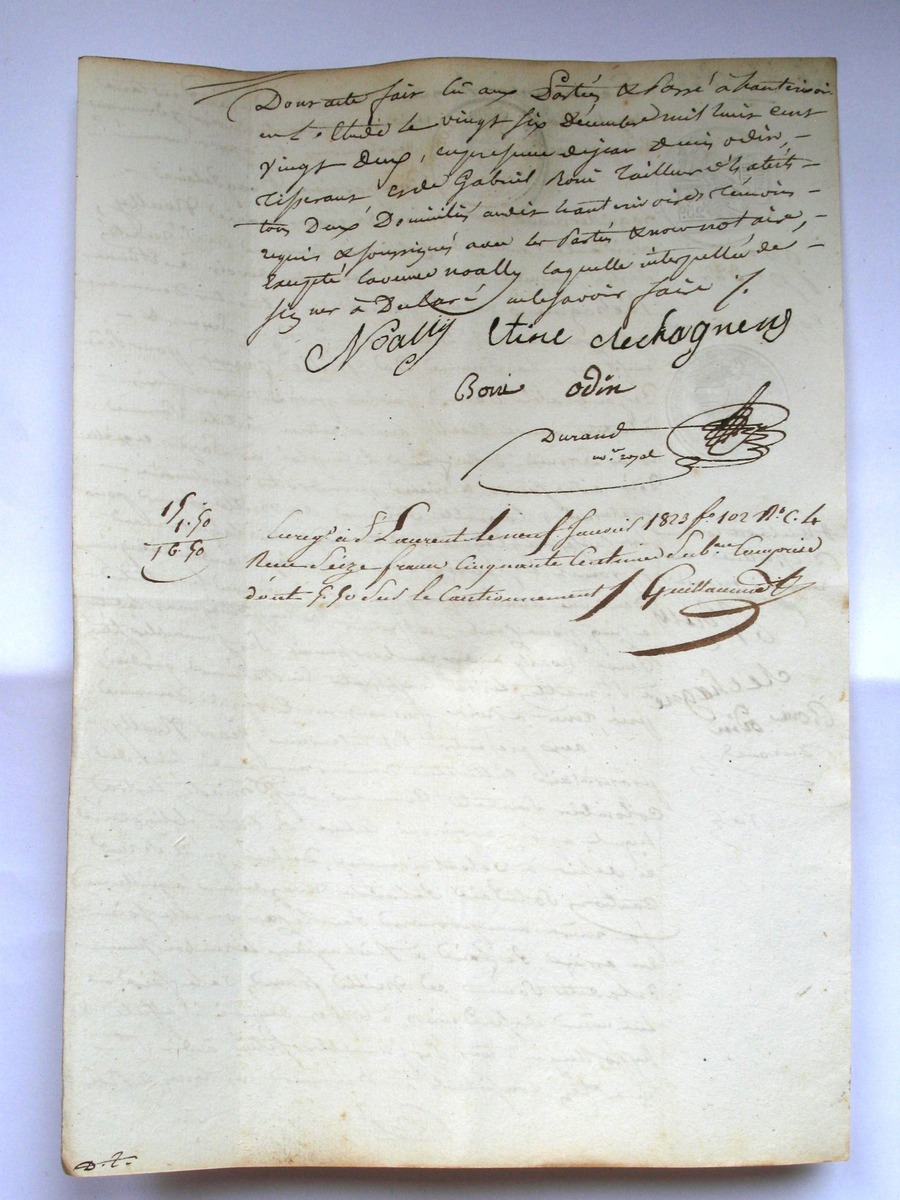 Dont acte fait lû aux Parties & Passé à hauterivoire
en l'étude le vingt six Decembre mil huit cent
vingt deux, en presence de jean Denis odin,
Tisserant, et de Gabriel Boué Tailleur d'habits
tous Deux Domiciliés audit hauterivoire Témoins
requis & soussignés avec les Parties & nous notaire,
Excepté la veuve Noally laquelle interpellée de
signer à Declaré ne le savoir faire
Noally Etine chechagneux
Boué odin
Durand
nore royal
15.
1.50
16.50
Enregé à St Laurent le neuf Janvier 1823 fo 102 Ro C. 4
Recu Seize francs Cinquante Centimes Subon Comprise
dont 5.50 sur le Cautionnement Guillaumet
D.t.